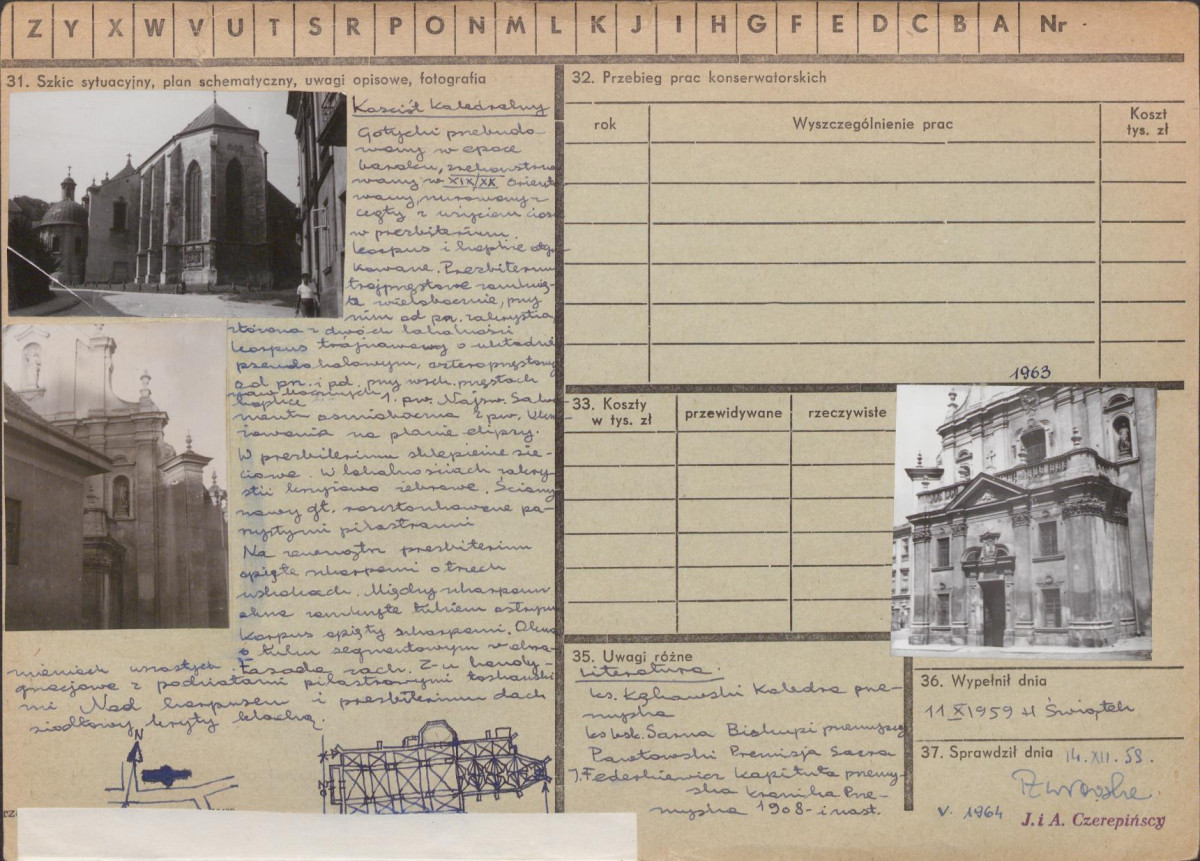 Z Y X W V U T S R P O N M L K J I H G F E D C B A Nr
31. Szkic sytuacyjny, plan schematyczny, uwagi opisowe, fotografia
Kościół Katedralny
Gotycki przebudo-
wany w epoce
baroku, zrekonstruo
wany w XIX/XX Oriento
wany, murowany z
cegły z użyciem cios
w prezbiterium.
Korpus i kaplice otyn-
kowane. Prezbiterium
trójprzęsłowe zamknię-
te wielobocznie, przy
nim od pn. zakrystia
złożona z dwóch lokalności
Korpus trójnawowy o układzie
pseudohalowym, czteroprzęsłowy
od pn. i pd. przy wsch. przęsłach
naw bocznych
kaplice 1. pw. Najśw. Sakra
mentu ośmioboczna 2 pw.
na planie elipsy.
W prezbiterium sklepienie sie-
ciowe. W lokalnościach zakry-
stii krzyżowo żebrowe. Ściany
nawy gł. rozczłonkowane pa-
rzystymi pilastrami
Na zewnątrz prezbiterium
opięte skarpami o trzech
uskokach. Między skarpami
okna zamknięte łukiem ostrym
Korpus opięty skarpami. Okna
o łuku segmentowym w obra-
mieniach uszastych Fasada zach. 2-u kondy-
gnacjowa z podziałami pilastrowymi toskański
mi Nad korpusem i prezbiterium dach
siodłowy kryty blachą.
N
N
32. Przebieg prac konserwatorskich
rok
Wyszczególnienie prac
Koszt
tys. zł
1963
33. Koszty
w tys. zł
przewidywane
rzeczywiste
35. Uwagi różne
Literatura:
ks. Katedra prze-
myska
ks bsk. Sarna Biskupi przemyscy
Pawłowski Premisja Sacra
J. Federkiewicz Kapituła przemy-
ska Kronika Prze-
myska 1908 - i nast.
36. Wypełnił dnia
11 X 1959 H Świątek
37. Sprawdził dnia 14. XII. 59.
V. 1964
J. i A. Czerepińscy